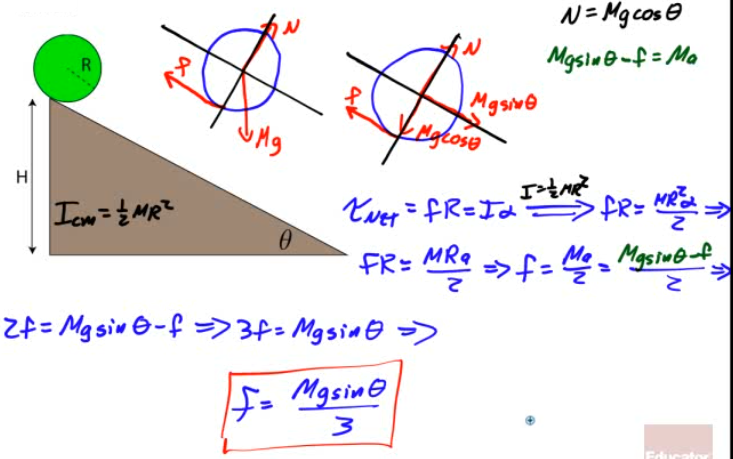 N = Mg cos θ
Mg sin θ - f = Ma
R
N
f
Mg
N
f
Mg sin θ
Mg cos θ
H
I_cm = ½ MR²
θ
τ_Net = fR = Iα ⟹ (I = ½ MR²) fR = MR²α/2 ⟹
FR = MRa/2 ⟹ f = Ma/2 = (Mg sin θ - f)/2 ⟹
2f = Mg sin θ - f ⟹ 3f = Mg sin θ ⟹
f = Mg sin θ / 3
Educator